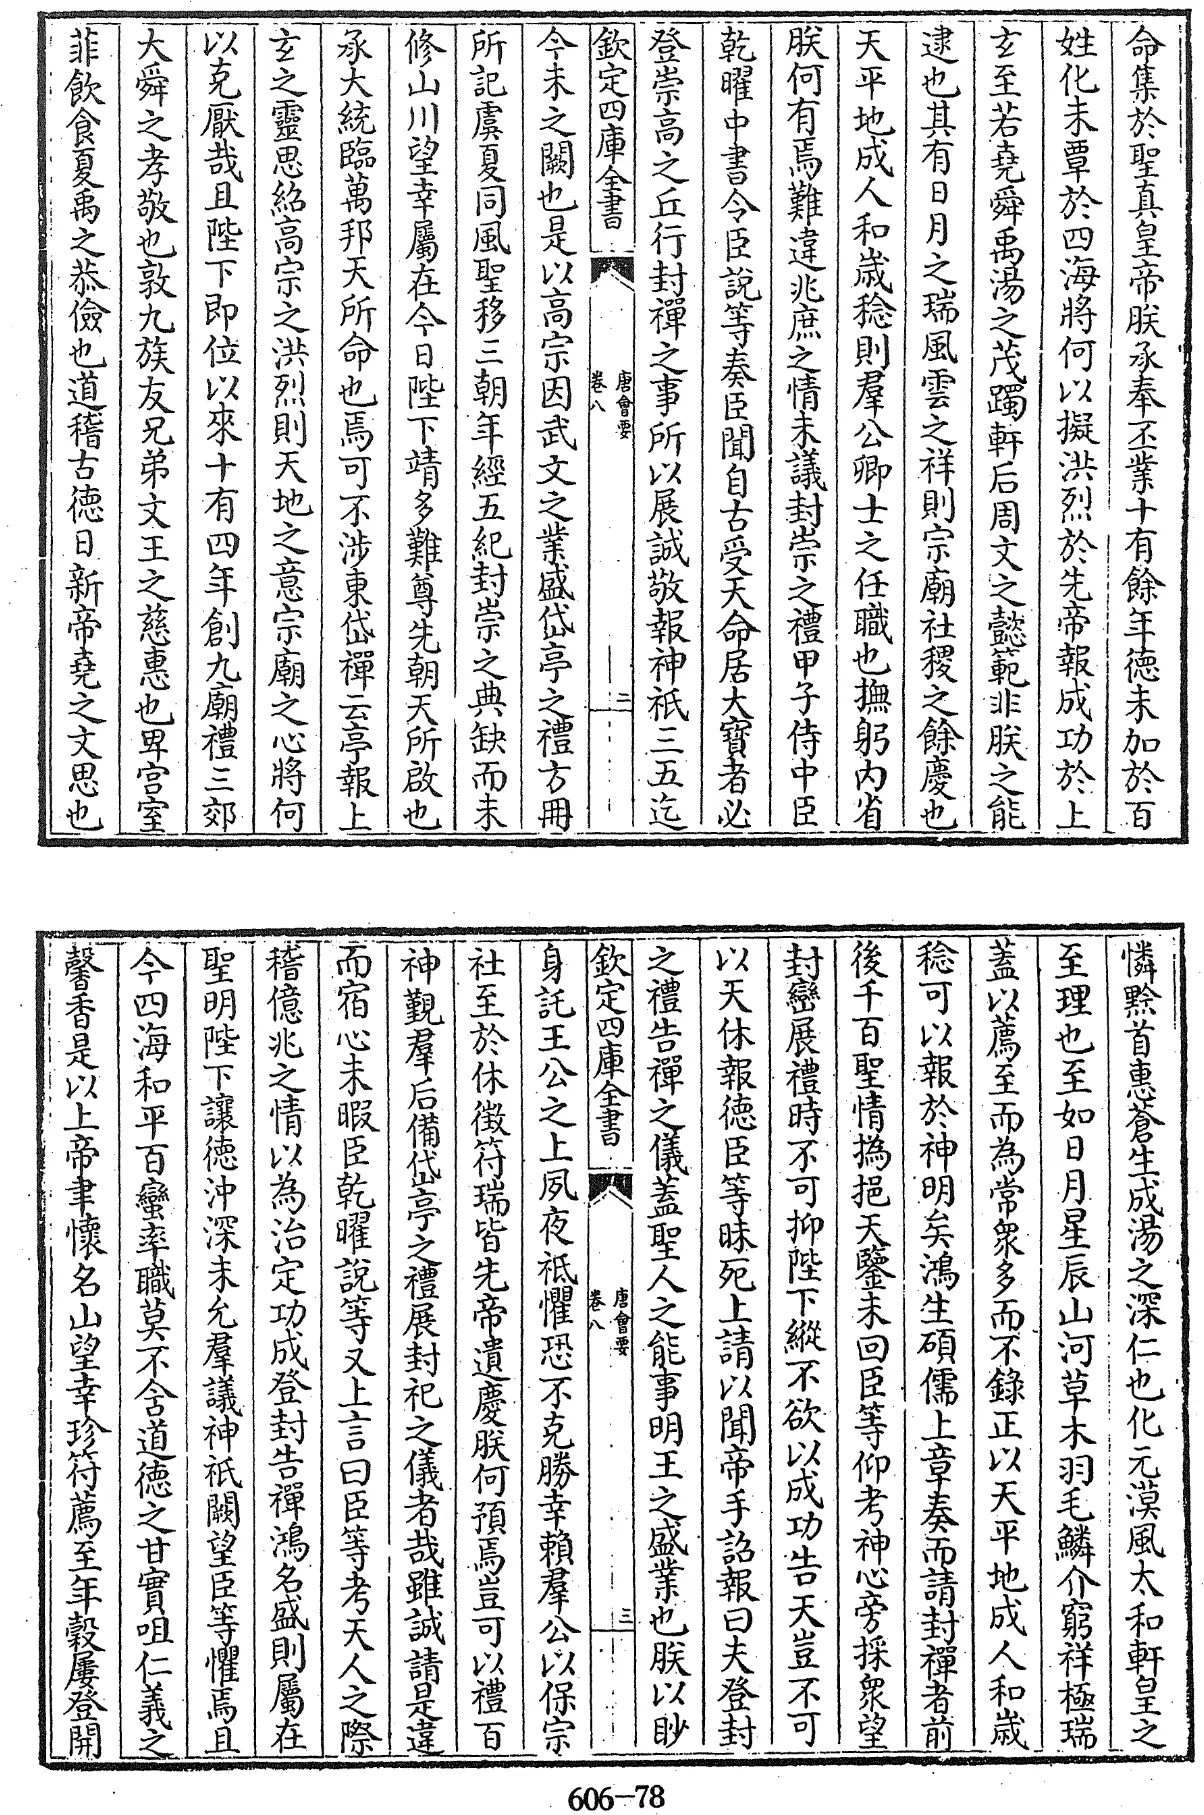 命集於聖真皇帝朕承奉丕業十有餘年德未加於百
姓化未覃於四海將何以擬洪烈於先帝報成功於上
玄至若堯舜禹湯之茂躅軒后周文之懿範非朕之能
逮也其有日月之瑞風雲之祥則宗廟社稷之餘慶也
天平地成人和歲稔則羣公卿士之任職也撫躬内省
朕何有焉難違兆庶之情未議封崇之禮甲子侍中臣
乾曜中書令臣說等奏臣聞自古受天命居大寶者必
登崇高之丘行封禪之事所以展誠敬報神祇三五迄
欽定四庫全書
唐會要
卷八
二
今未之闕也是以高宗因武文之業盛岱亭之禮方冊
所記虞夏同風聖移三朝年經五紀封崇之典缺而未
修山川望幸屬在今日陛下靖多難尊先朝天所啟也
承大統臨萬邦天所命也焉可不涉東岱禪云亭報上
玄之靈思紹高宗之洪烈則天地之意宗廟之心將何
以克厭哉且陛下即位以來十有四年創九廟禮三郊
大舜之孝敬也敦九族友兄弟文王之慈惠也卑宫室
菲飲食夏禹之恭儉也道稽古德日新帝堯之文思也
憐黔首惠蒼生成湯之深仁也化元漠風太和軒皇之
至理也至如日月星辰山河草木羽毛鱗介窮祥極瑞
蓋以薦至而為常衆多而不錄正以天平地成人和歲
稔可以報於神明矣鴻生碩儒上章奏而請封禪者前
後千百聖情撝挹天鑒未回臣等仰考神心旁採衆望
封巒展禮時不可抑陛下縱不欲以成功告天豈不可
以天休報德臣等昧死上請以聞帝手詔報曰夫登封
之禮告禪之儀蓋聖人之能事明王之盛業也朕以眇
欽定四庫全書
唐會要
卷八
三
身託王公之上夙夜祗懼恐不克勝幸賴羣公以保宗
社至於休徵符瑞皆先帝遺慶朕何預焉豈可以禮百
神觀羣后備岱亭之禮展封祀之儀者哉雖誠請是違
而宿心未暇臣乾曜說等又上言曰臣等考天人之際
稽億兆之情以為治定功成登封告禪鴻名盛則屬在
聖明陛下讓德沖深未允羣議神祇闕望臣等懼焉且
今四海和平百蠻率職莫不含道德之甘實咀仁義之
馨香是以上帝聿懷名山望幸珍符薦至年穀屢登開
606-78